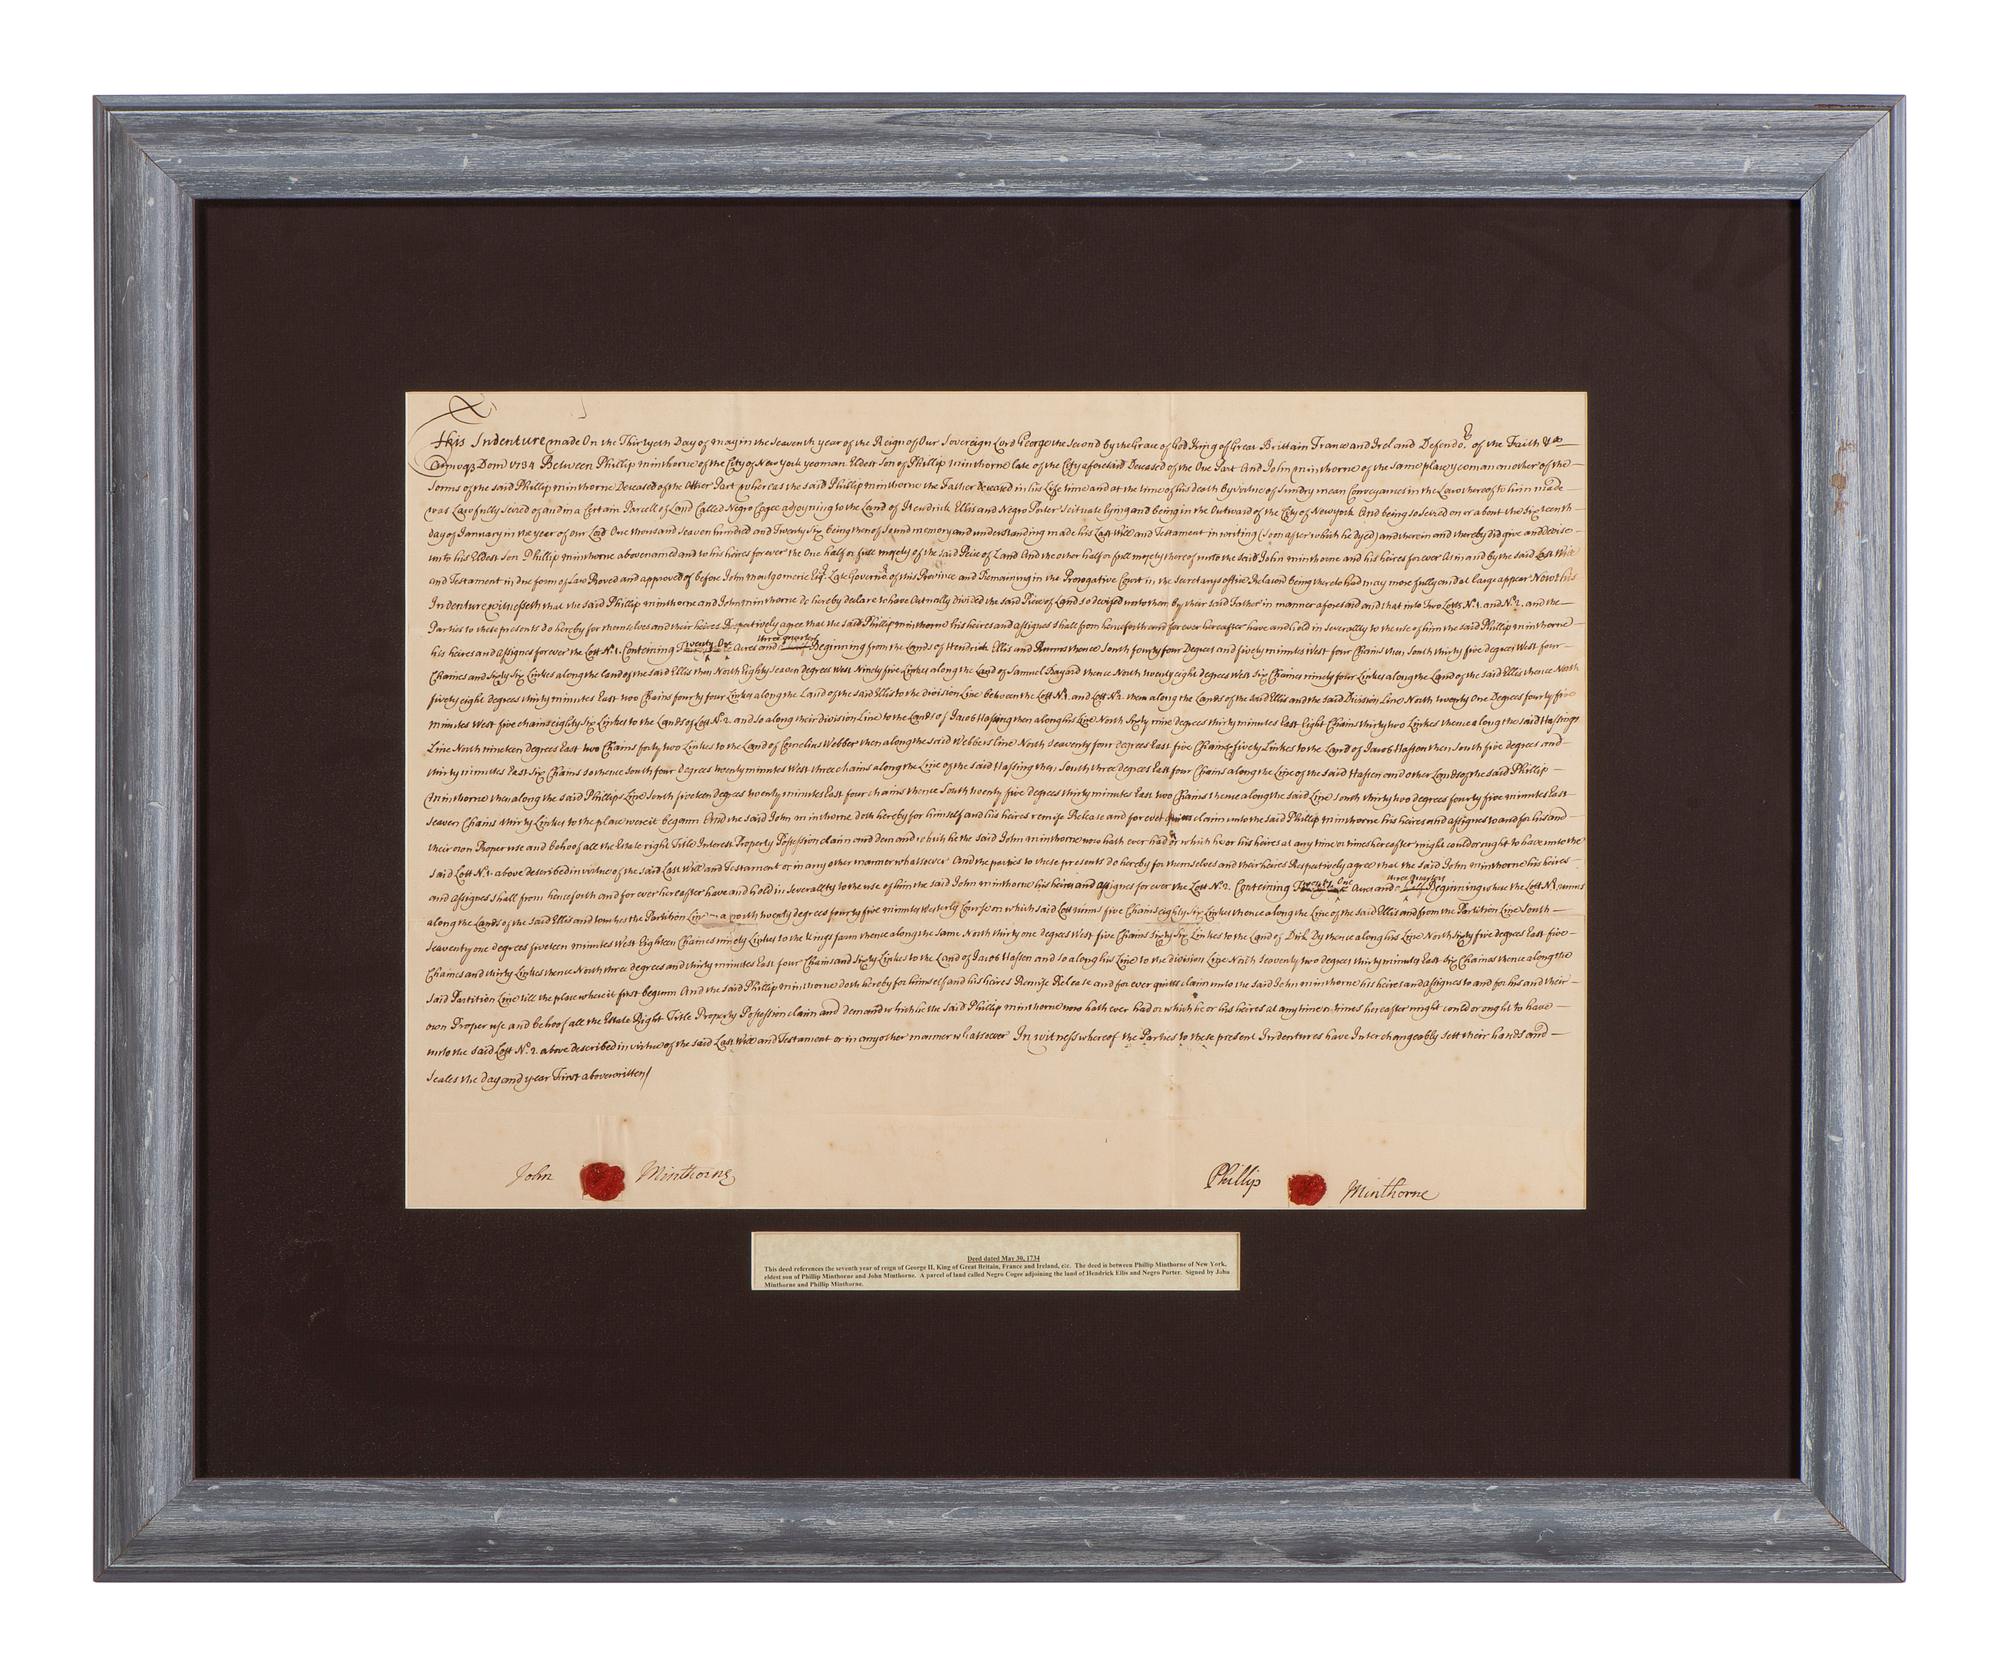 This Indenture made On the Thirtyeth Day of may in the Seaventh year of the Reign of Our Sovereign Lord George the Second by the Grace of God King of Great Brittain France and Ireland Defendor. of the Faith &c
Annoq3 Dom. 1734 Between Phillip minthorne of the City of New York yeoman Eldest Son of Phillip minthorne late of the City aforesaid Deceased of the One Part And John minthorne of the same place yeoman another of the
Sonns of the said Phillip minthorne Deceased of the Other Part whereas the said Phillip minthorne the Father Deceased in his Life time and at the time of his death by virtue of Sundry mean Conveyances in the Law thereof to him made
was Lawfully Seized of and in a Certain Parcell of Land Called Negro Cogee adjoyning to the Land of Hendrick Ellis and Negro Porter Scituate lying and being in the Outward of the City of Newyork And being so Seized on or about the Sixteenth
day of January in the year of our Lord One thousand Seaven hundred and Twenty Six being then of Sound memory and understanding made his Last Will and Testament in writing (soon after which he dyed) and therein and thereby did give and devise
unto his Eldest Son Phillip minthorne abovenamed and to his heires forever the One half or full moyety of the said Peice of Land And the other half or full moyety thereof unto the said John minthorne and his heires for ever As in and by the said Last Will
and Testament in Due form of Law Proved and approved of before John montgomerie Esqr. Late Governor. of this Province and Remaining in the Prerogative Court in the Secretarys office Relacon being thereto had may more fully and at large appear Now this
Indenture witnesseth that the said Phillip minthorne and John minthorne do hereby declare to have Actually divided the said Piece of Land so devized unto them by their said Father in manner aforesaid and that into Two Lotts No. 1. and No. 2. and the
Parties to these presents do hereby for themselves and their heires Respectively agree that the said Phillip minthorne his heires and assignes shall from henceforth and for ever hereafter have and hold in Severallty to the use of him the said Phillip minthorne
his heires and assignes forever the Lott No. 1. Conteining Twenty One Acres and three quarters Beginning from the Lands of Hendrick Ellis and Runns thence South fourty four Degrees and fivety minutes West four Chains then South thirty five degrees West four
Chaines and Sixty Six Linkes along the land of the said Ellis then North Eighty Seaven degrees West Ninety five Linkes along the Land of Samuel Bayard thence North twenty eight degrees West Six Chaines ninety four Linkes along the Land of the said Ellis thence North
fivety eight degrees thirty minutes East two Chains fourty four Linkes along the Land of the said Ellis to the division Line between the Lott No. 1. and Lott No. 2. then along the Lands of the said Ellis and the said Division Line North twenty One Degrees fourty five
minutes West five chains eighty Six Linkes to the Lands of Lott No. 2. and so along their division Line to the Lands of Jacob Hassing then along his Line North Sixty nine degrees thirty minutes East Eight Chains thirty two Linkes thence along the said Hassings
Line North nineteen degrees East two Chains forty two Linkes to the Land of Cornelius Webber then along the said Webbers line North Seaventy four degrees East five Chains fivety Linkes to the Land of Jacob Hassen then South five degrees and
thirty minutes East Six Chains so thence South four degrees twenty minutes West three chains along the Line of the said Hassing then South three degrees East four Chains along the Line of the said Hassen and other Lands of the said Phillip
Minthorne then along the said Phillips Line South fiveteen degrees twenty minutes East four chains thence South twenty five degrees thirty minutes East two Chains thence along the said Line South thirty two degrees fourty five minutes East
Seaven Chains thirty Linkes to the place were it began And the said John minthorne doth hereby for himself and his heires remise Release and for ever quitt claim unto the said Phillip minthorne his heires and assignes to and for his and
their own Proper use and behoof all the Estate right Title Interest Property Possession claim and demand which he the said John minthorne now hath ever had or which he or his heires at any time or times hereafter might could or ought to have unto the
said Lott No. 1. above described in virtue of the said Last Will and Testament or in any other manner whatsoever And the parties to these presents do hereby for themselves and their heires Respectively agree that the said John minthorne his heires
and assignes shall from henceforth and for ever hereafter have and hold in Severallty to the use of him the said John minthorne his heires and assignes for ever the Lott No. 2. Conteining Twenty One Acres and three Quarters Beginning where the Lott No. 1 runns
along the Lands of the said Ellis and touches the Partition Line a north twenty degrees fourty five minutes Westerly Course on which said Lott runns five Chains eighty Six Linkes thence along the Line of the said Ellis and from the Partition Line South
Seaventy one degrees fiveteen minutes West Eighteen Chaines ninety Linkes to the Kings farm thence along the same North thirty one degrees West five Chains Sixty Six Linkes to the Land of Dirk Dy thence along his Line North Sixty five degrees East five
Chaines and thirty Linkes thence North three degrees and thirty minutes East four Chains and Sixty Linkes to the Land of Jacob Hassen and so along his Line to the division Line North Seaventy two degrees thirty minutes East Six Chains thence along the
said Partition Line till the place where it first begunn And the said Phillip minthorne doth hereby for himself and his heires Remise Release and for ever quitt claim unto the said John minthorne his heires and assignes to and for his and their
own Proper use and behoof all the Estate Right Title Property Possession claim and demand which he the said Phillip minthorne now hath ever had or which he or his heires at any time or times hereafter might could or ought to have
unto the said Lott No. 2. above described in virtue of the said Last Will and Testament or in any other manner whatsoever In witness whereof the Parties to these present Indentures have Interchangeably sett their hands and
Seales the day and year First abovewritten/
John Minthorne
Phillip Minthorne
Deed dated May 30, 1734
This deed references the seventh year of reign of George II, King of Great Britain, France and Ireland, etc. The deed is between Phillip Minthorne of New York,
eldest son of Phillip Minthorne and John Minthorne. A parcel of land called Negro Cogee adjoining the land of Hendrick Ellis and Negro Porter. Signed by John
Minthorne and Phillip Minthorne.